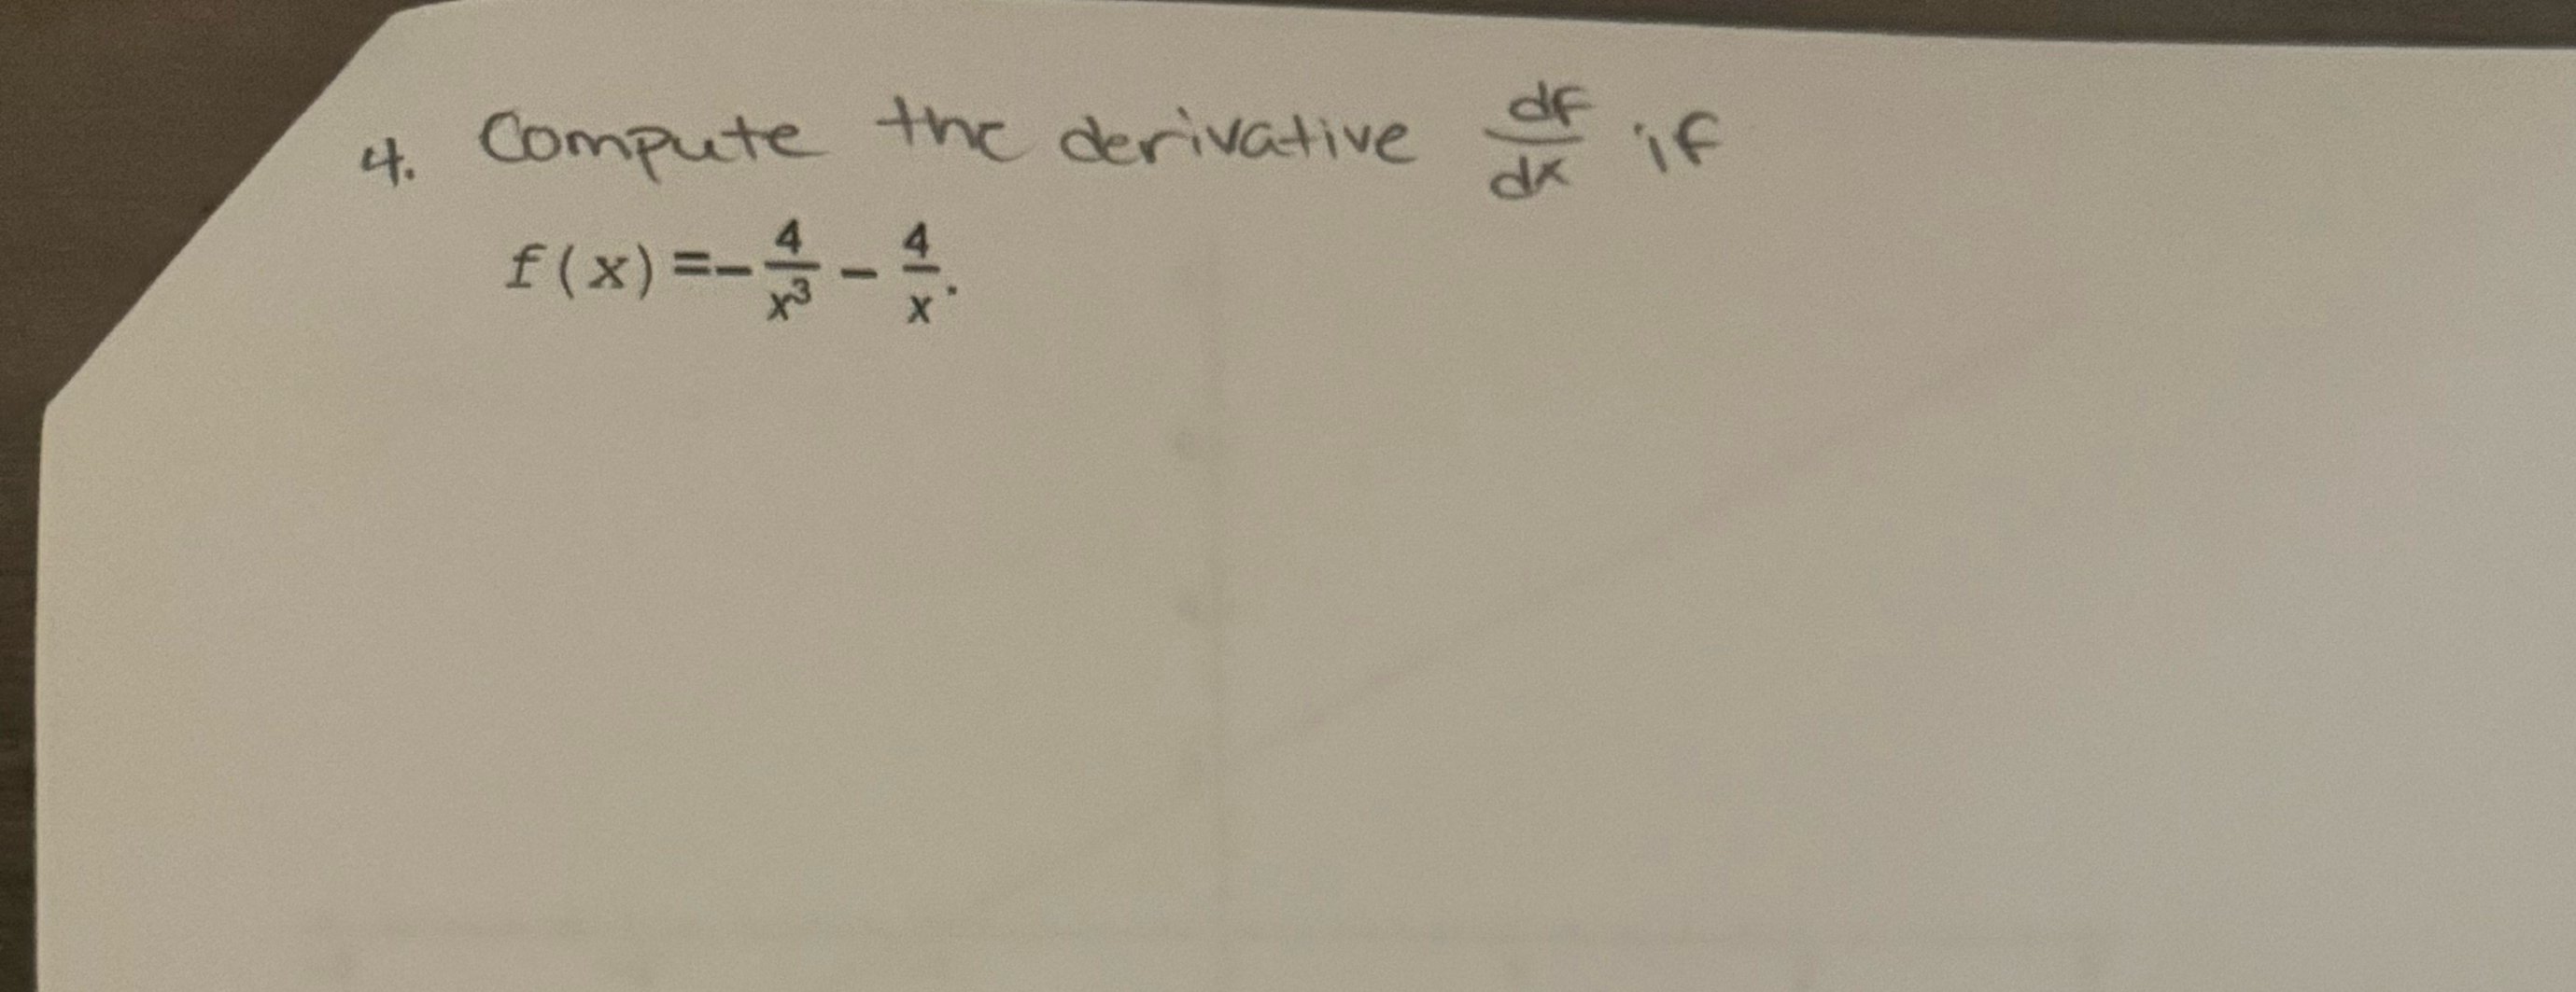 4. Compute the derivative df/dx if
f(x)=-4/x³ - 4/x.